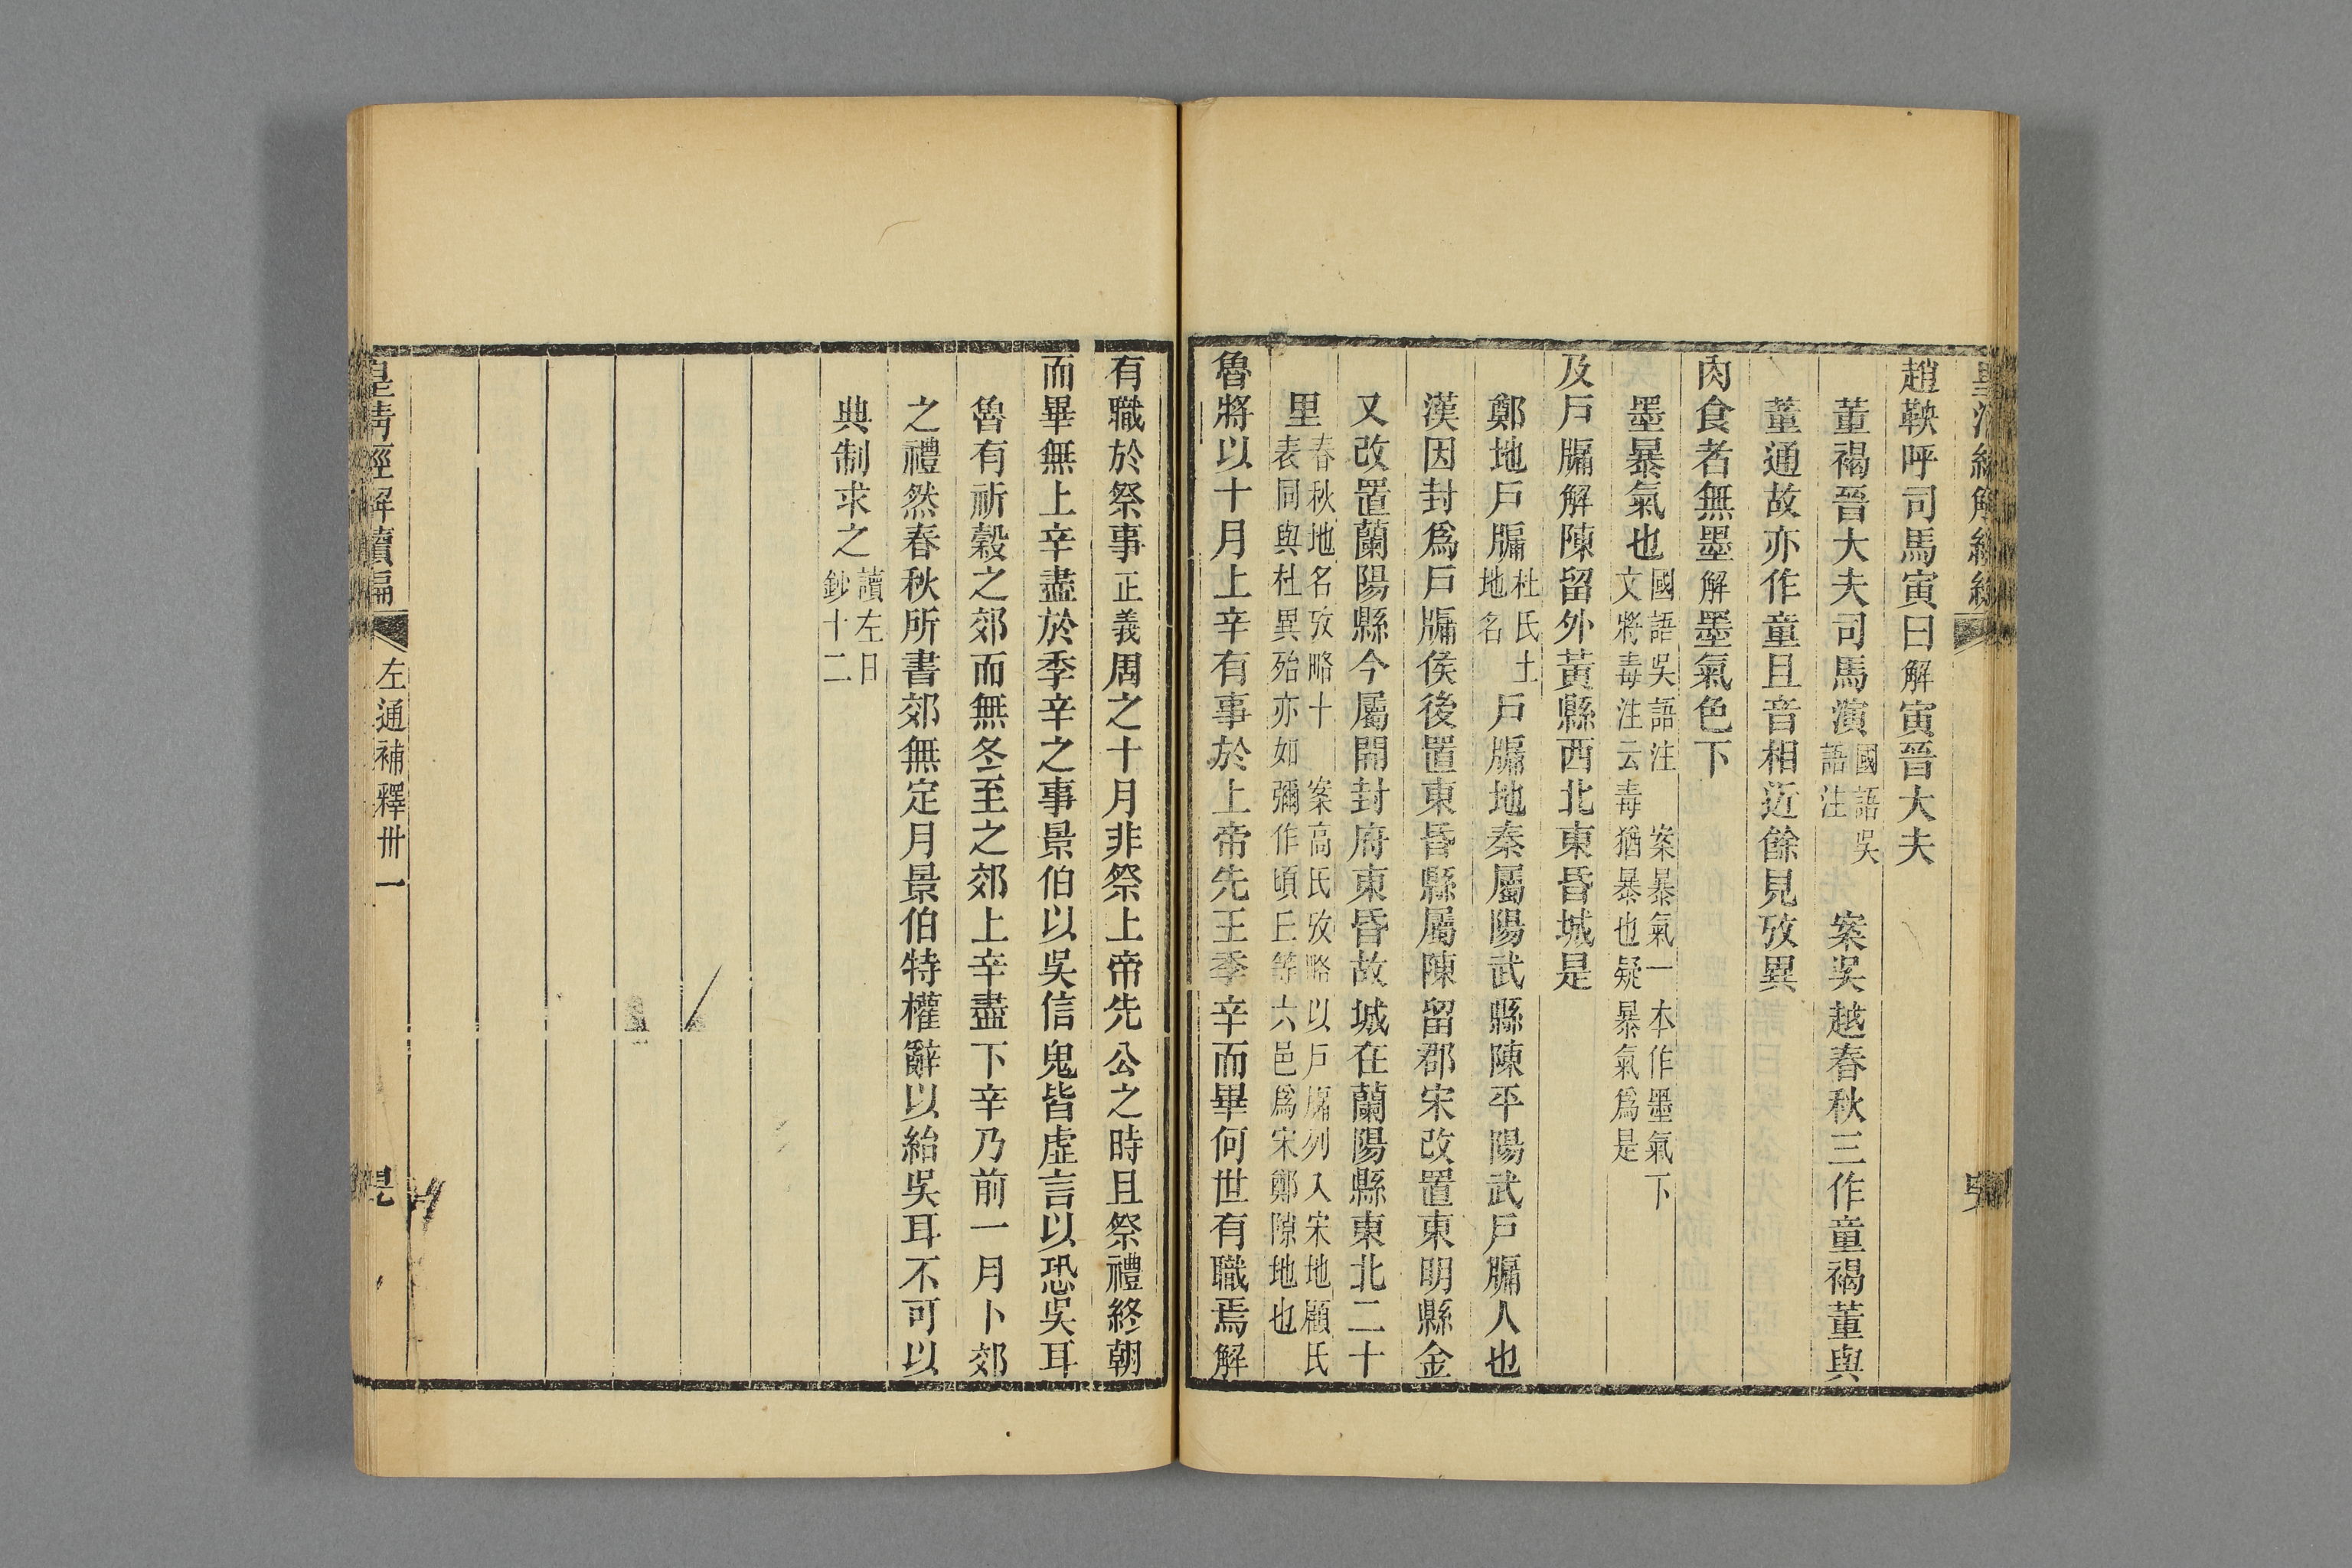 趙鞅呼司馬寅曰解寅晉大夫
董褐晉大夫司馬演國語吳語注案吳越春秋三作童褐董與
董通故亦作童且音相近餘見攷異
肉食者無墨解墨氣色下
墨暴氣也國語吳語注案暴氣一本作墨氣下文將毒注云毒猶暴也疑暴氣爲是
及戶牖解陳留外黃縣西北東昏城是
鄭地戶牖杜氏土地名戶牖地秦屬陽武縣陳平陽武戶牖人也
漢因封爲戶牖侯後置東昏縣屬陳留郡宋改置東明縣金
又改置蘭陽縣今屬開封府東昏故城在蘭陽縣東北二十
里春秋地名攷略十案高氏攷略以戶牖列入宋地顧氏表同與杜異殆亦如彌作頃丘等六邑爲宋鄭隙地也
魯將以十月上辛有事於上帝先王季辛而畢何世有職焉解
有職於祭事正義周之十月非祭上帝先公之時且祭禮終朝
而畢無上辛盡於季辛之事景伯以吳信鬼皆虛言以恐吳耳
魯有祈穀之郊而無冬至之郊上辛盡下辛乃前一月卜郊
之禮然春秋所書郊無定月景伯特權辭以紿吳耳不可以
典制求之讀左日鈔十二
皇清經解續編
左通補釋卅一